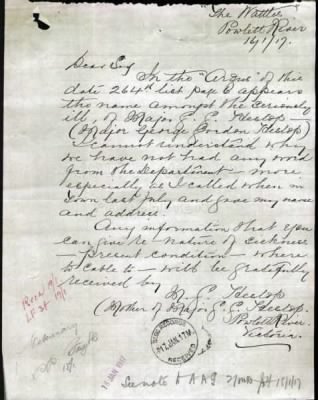 "The Wattles"
Powlett River
16/1/17.
Dear Sir
In the "Argus" of this
date 264th list page 6 appears
the name amongst the seriously
ill, of Major G. G. Heslop -
(Major George Gordon Heslop)
I cannot understand why
we have not had any word
from the Department - more
especially as I called when in
Town last July and gave my name
and address.
Any information that you
can give re - nature of sickness
- present condition - where
to cable to - will be gratefully
received by
M. E. Heslop
(Mother of Major G. G. Heslop
Powlett River
Victoria.
RECEIVED
17 JAN 17
See note to AAG